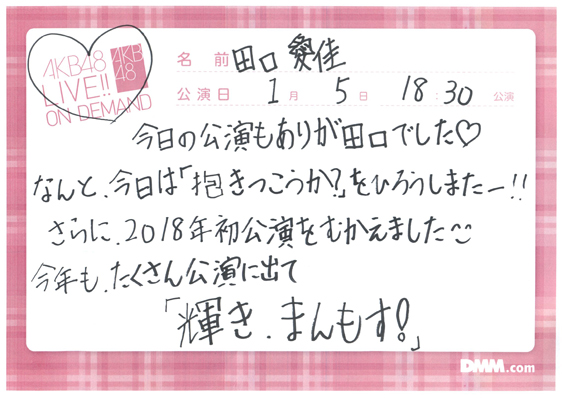 AKB48
LIVE!!
ON DEMAND
AKB
48
名前 田口 愛佳
公演日 1月 5日 18:30 公演
今日の公演もありが田口でした♡
なんと、今日は「抱きつこうか?」をひろうしましたー!!
さらに、2018年初公演をむかえました
今年も、たくさん公演に出て
「輝き、まんもす!」
DMM.com